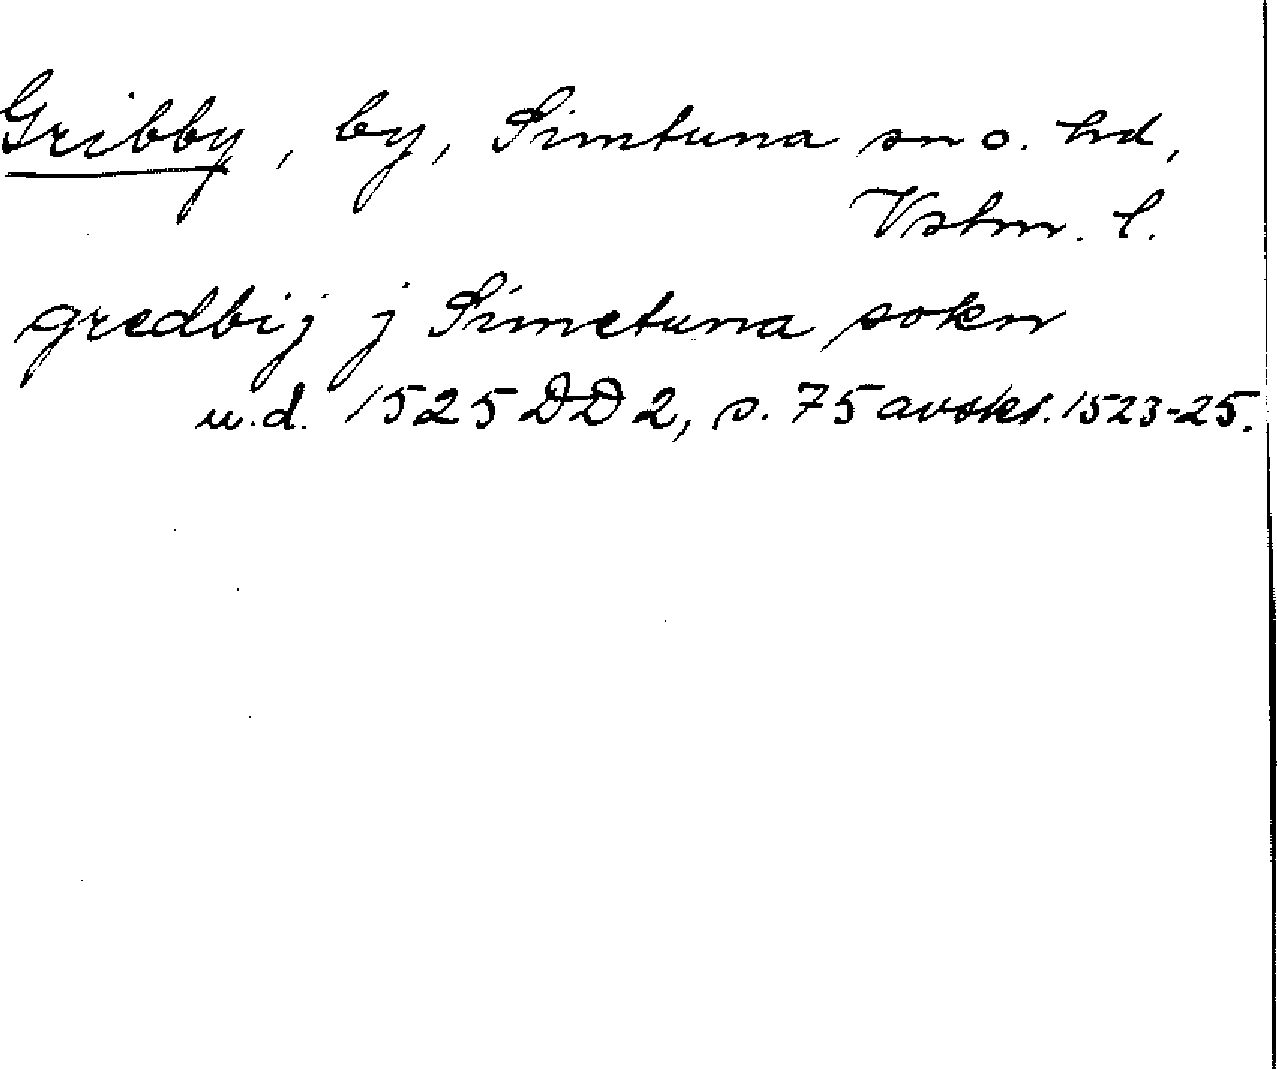 Gribby, by, Simtuna sn o. hd,
Vstm. l.
gredbij j Simetuna sokn
u.d. 1525 DD 2, s. 75 avskr. 1523-25.